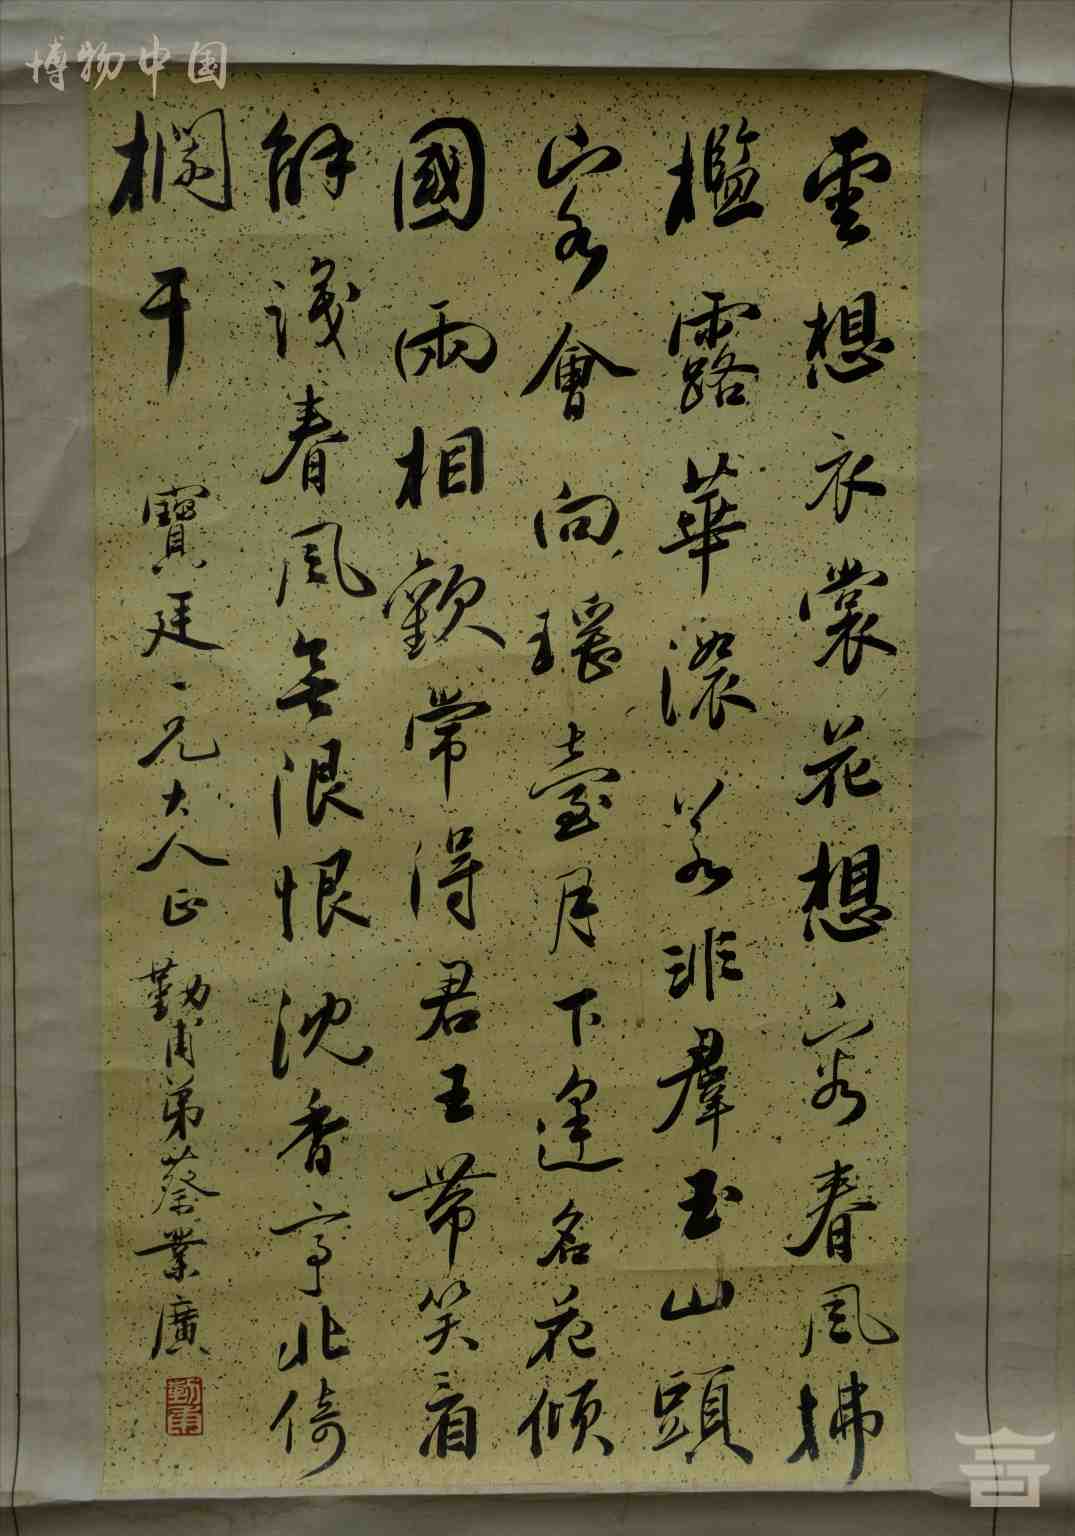 博物中国
雲想衣裳花想容春風拂
檻露華濃若非羣玉山頭
容會向瑶臺月下逢名花傾
國兩相歡常得君王帶笑看
解識春風無限恨沈香亭北倚
欄干 寶廷兄大人正 勤甫弟蔡業廣